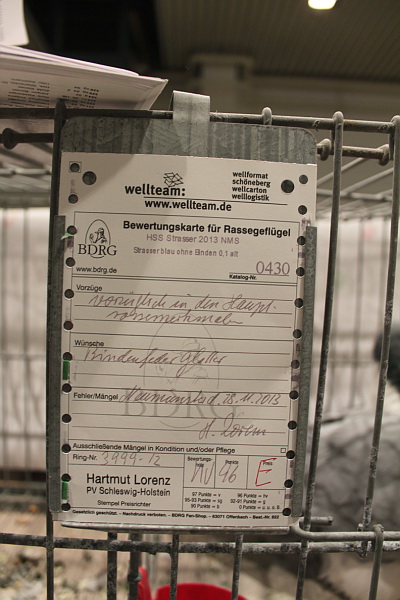 wellteam:
wellformat
schöneberg
wellcarton
welllogistik
www.wellteam.de
BDRG
Bewertungskarte für Rassegeflügel
HSS Strasser 2013 NMS
Strasser blau ohne Binden 0,1 alt
www.bdrg.de
Katalog-Nr. 0430
Vorzüge
vorzüglich in den Haupt-
rassemerkmalen
Wünsche
Bindenfeder glatter
Fehler/Mängel Neumünster d. 28.11.2013
H. Lorenz
Ausschließende Mängel in Kondition und/oder Pflege
Ring-Nr. 3999-12
Bewertungs-Note HV
Punkte 96
Preis E
Hartmut Lorenz
PV Schleswig-Holstein
Stempel Preisrichter
97 Punkte = v 96 Punkte = hv
95-93 Punkte = sg 92-91 Punkte = g
90 Punkte = b 0 Punkte = u. o. a. o.
Gesetzlich geschützt. – Nachdruck verboten. – BDRG Fan-Shop. – 63071 Offenbach – Best.-Nr. 922